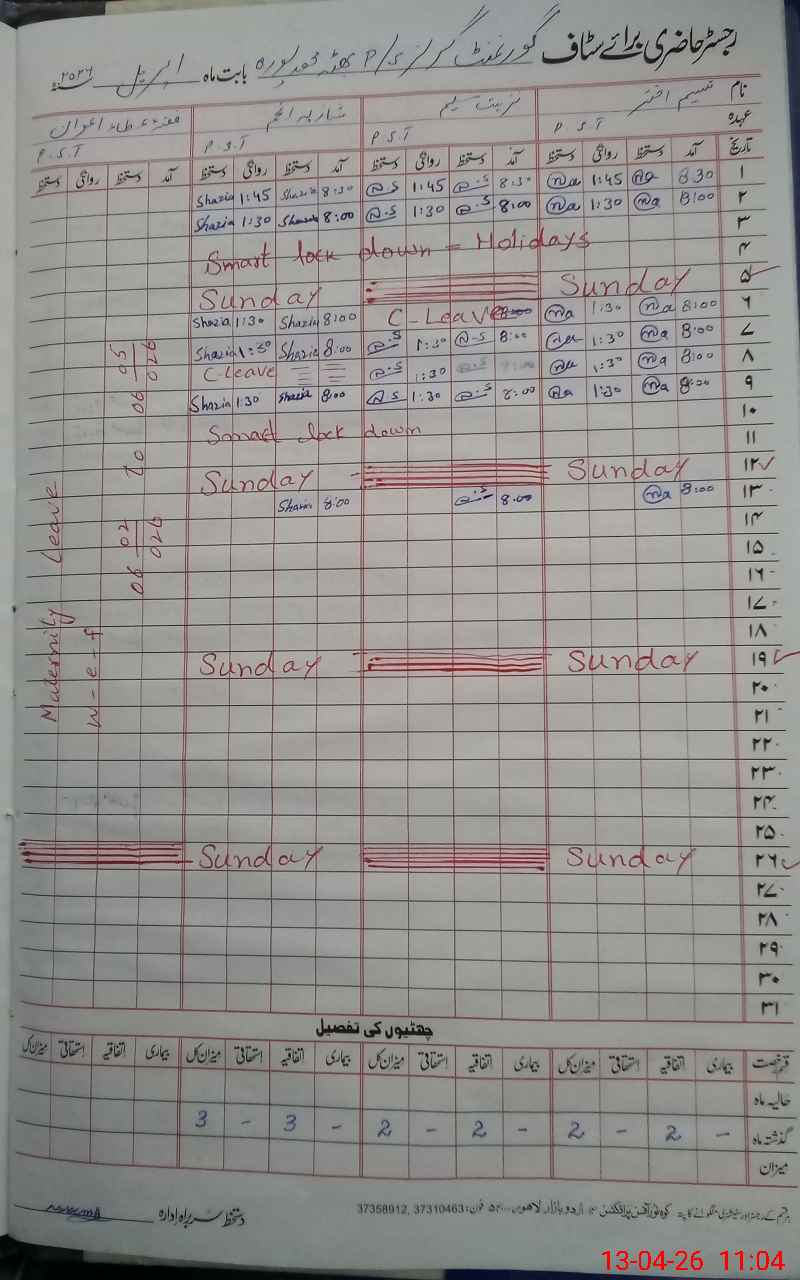 رجسٹر حاضری برائے سٹاف گورنمنٹ گرلز P/S بابت ماہ اپریل ۲۰۲۶ء
نام نسیم اختر نزہت سلیم شازیہ انجم
عہدہ P.S.T P.S.T P.S.T P.S.T
تاریخ آمد دستخط روانگی دستخط آمد دستخط روانگی دستخط آمد دستخط روانگی دستخط آمد دستخط روانگی دستخط
Shazia 1:45 Shazia 8:30 1:45 8:30 1:45 8:30 ۱
Shazia 1:30 Shazia 8:00 1:30 8:00 1:30 8:00 ۲
۳
Smart lock down = Holidays ۴
Sunday Sunday ۵
Shazia 1:30 Shazia 8:00 C-Leave 1:30 8:00 ۶
Shazia 1:30 Shazia 8:00 1:30 8:00 1:30 8:00 ۷
C-Leave 1:30 1:30 8:00 ۸
Shazia 1:30 Shazia 8:00 1:30 8:00 1:30 8:00 ۹
۱۰
Smart lock down ۱۱
Sunday Sunday ۱۲
Shazia 8:00 8:00 8:00 ۱۳
۱۴
۱۵
۱۶
۱۷
۱۸
Sunday Sunday ۱۹
۲۰
۲۱
۲۲
۲۳
۲۴
۲۵
Sunday Sunday ۲۶
۲۷
۲۸
۲۹
۳۰
۳۱
Maternity Leave
w-e-f 06 02 026 to 06 05 026
چھٹیوں کی تفصیل
قسم رخصت بیماری اتفاقیہ استحقاقی میزان کل بیماری اتفاقیہ استحقاقی میزان کل بیماری اتفاقیہ استحقاقی میزان کل بیماری اتفاقیہ استحقاقی میزان کل
حالیہ ماہ
گذشتہ ماہ - 2 - 2 - 2 - 2 - 3 - 3
میزان
دستخط سربراہ ادارہ
اردو بازار لاہور فون: 37310463, 37358912
13-04-26 11:04